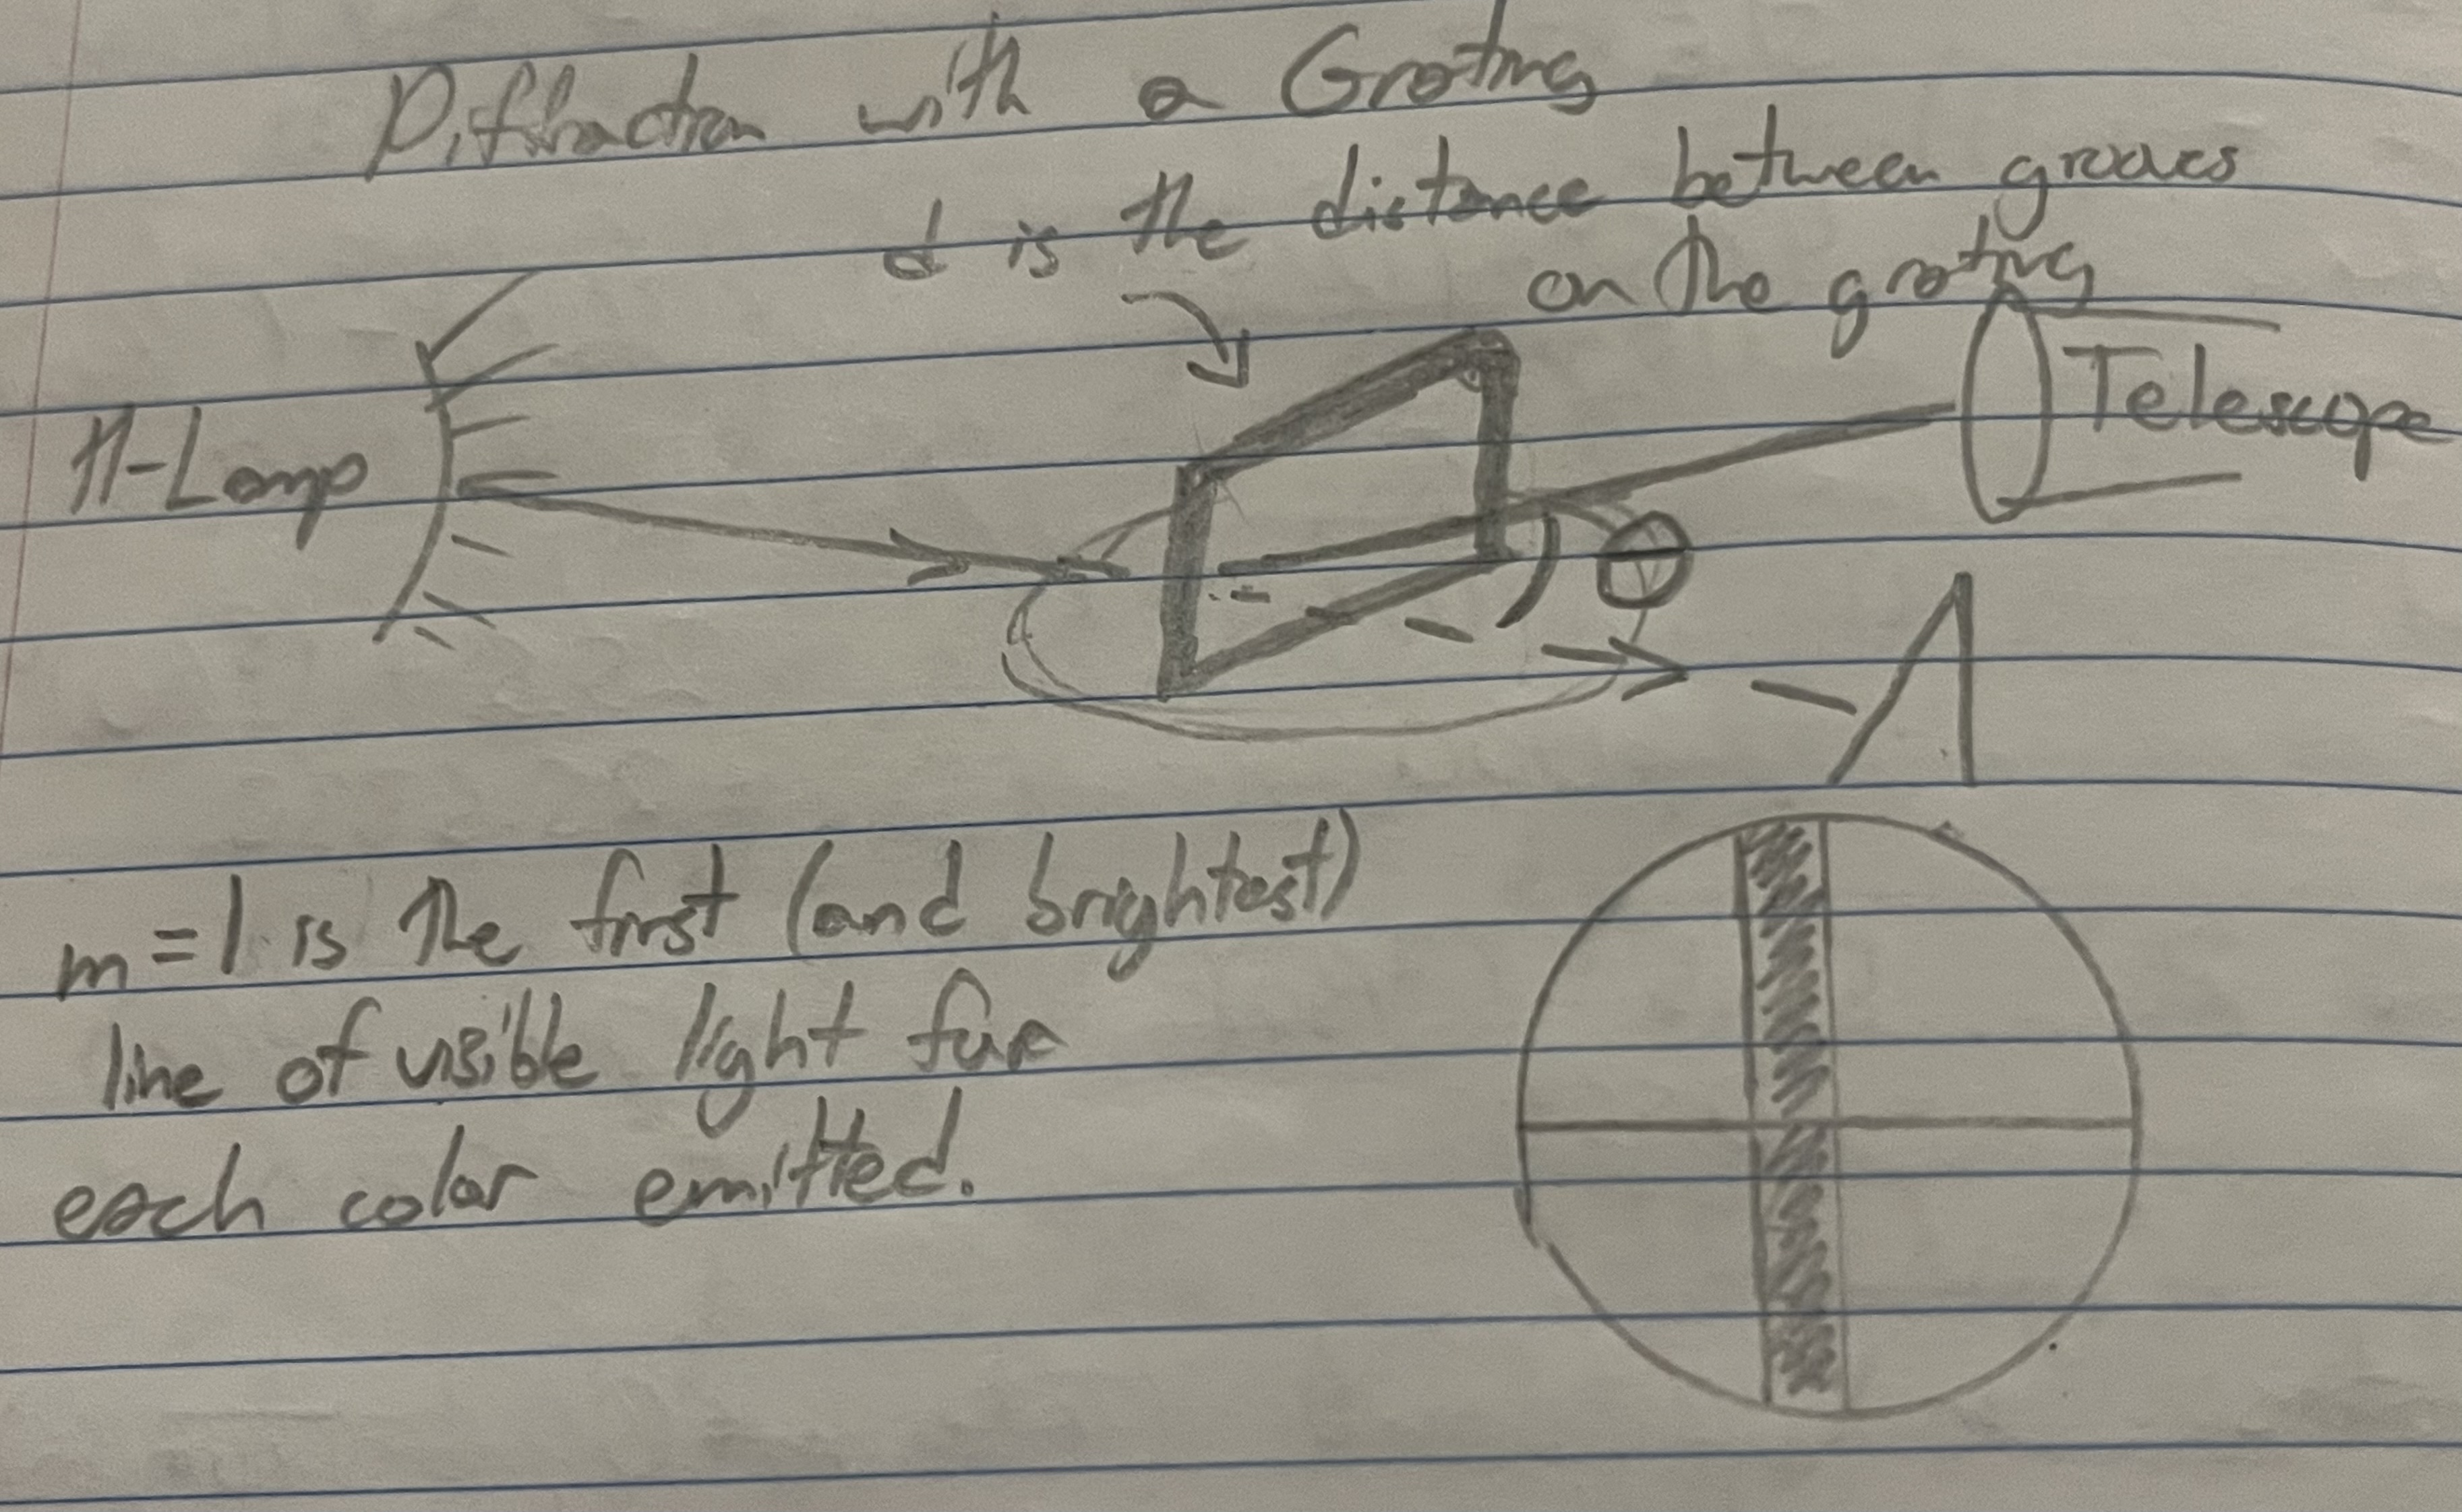 Diffraction with a Grating
d is the distance between grooves
on the grating
H-Lamp
Telescope
θ
m=1 is the first (and brightest)
line of visible light for
each color emitted.